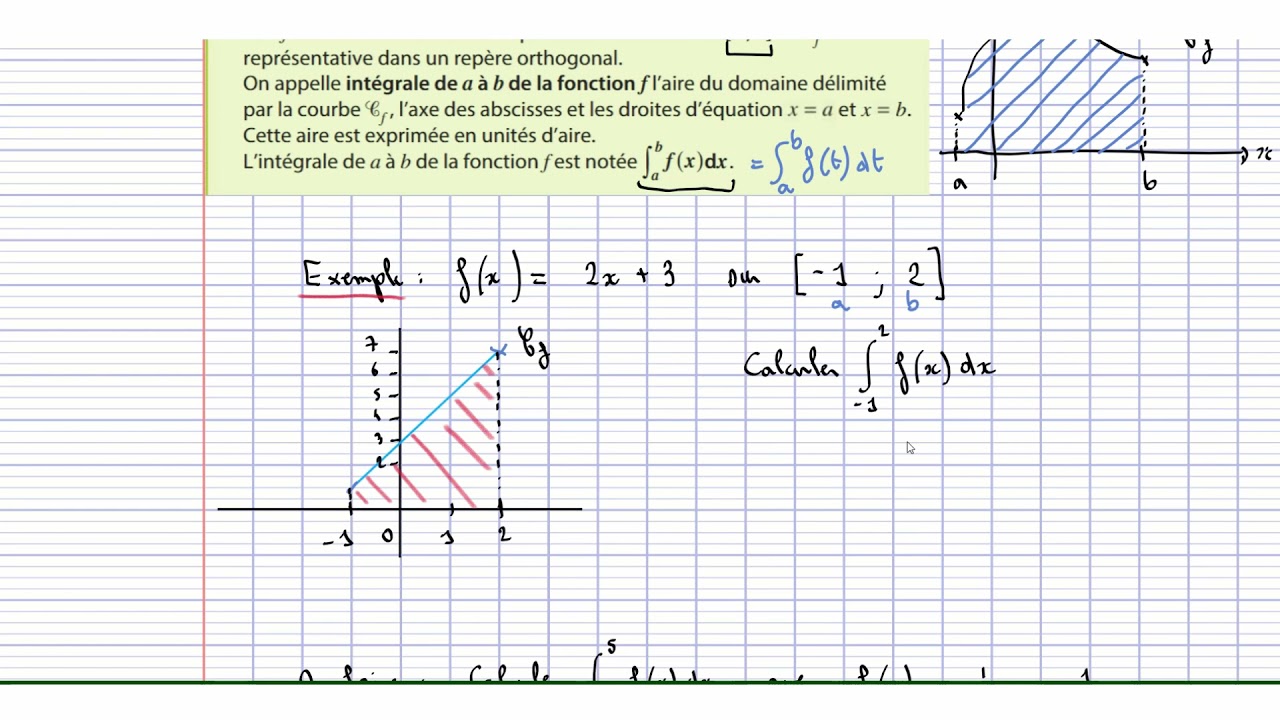 représentative dans un repère orthogonal.
On appelle intégrale de a à b de la fonction f l'aire du domaine délimité
par la courbe 𝒞f, l'axe des abscisses et les droites d'équation x = a et x = b.
Cette aire est exprimée en unités d'aire.
L'intégrale de a à b de la fonction f est notée ∫ₐᵇ f(x)dx. = ∫ₐᵇ f(t) dt
𝒞f
x
a b
Exemple : f(x) = 2x + 3 sur [-1 ; 2]
a b
Calculer ∫₋₁² f(x) dx
𝒞f
7
6
5
4
3
2
-1 0 1 2
5